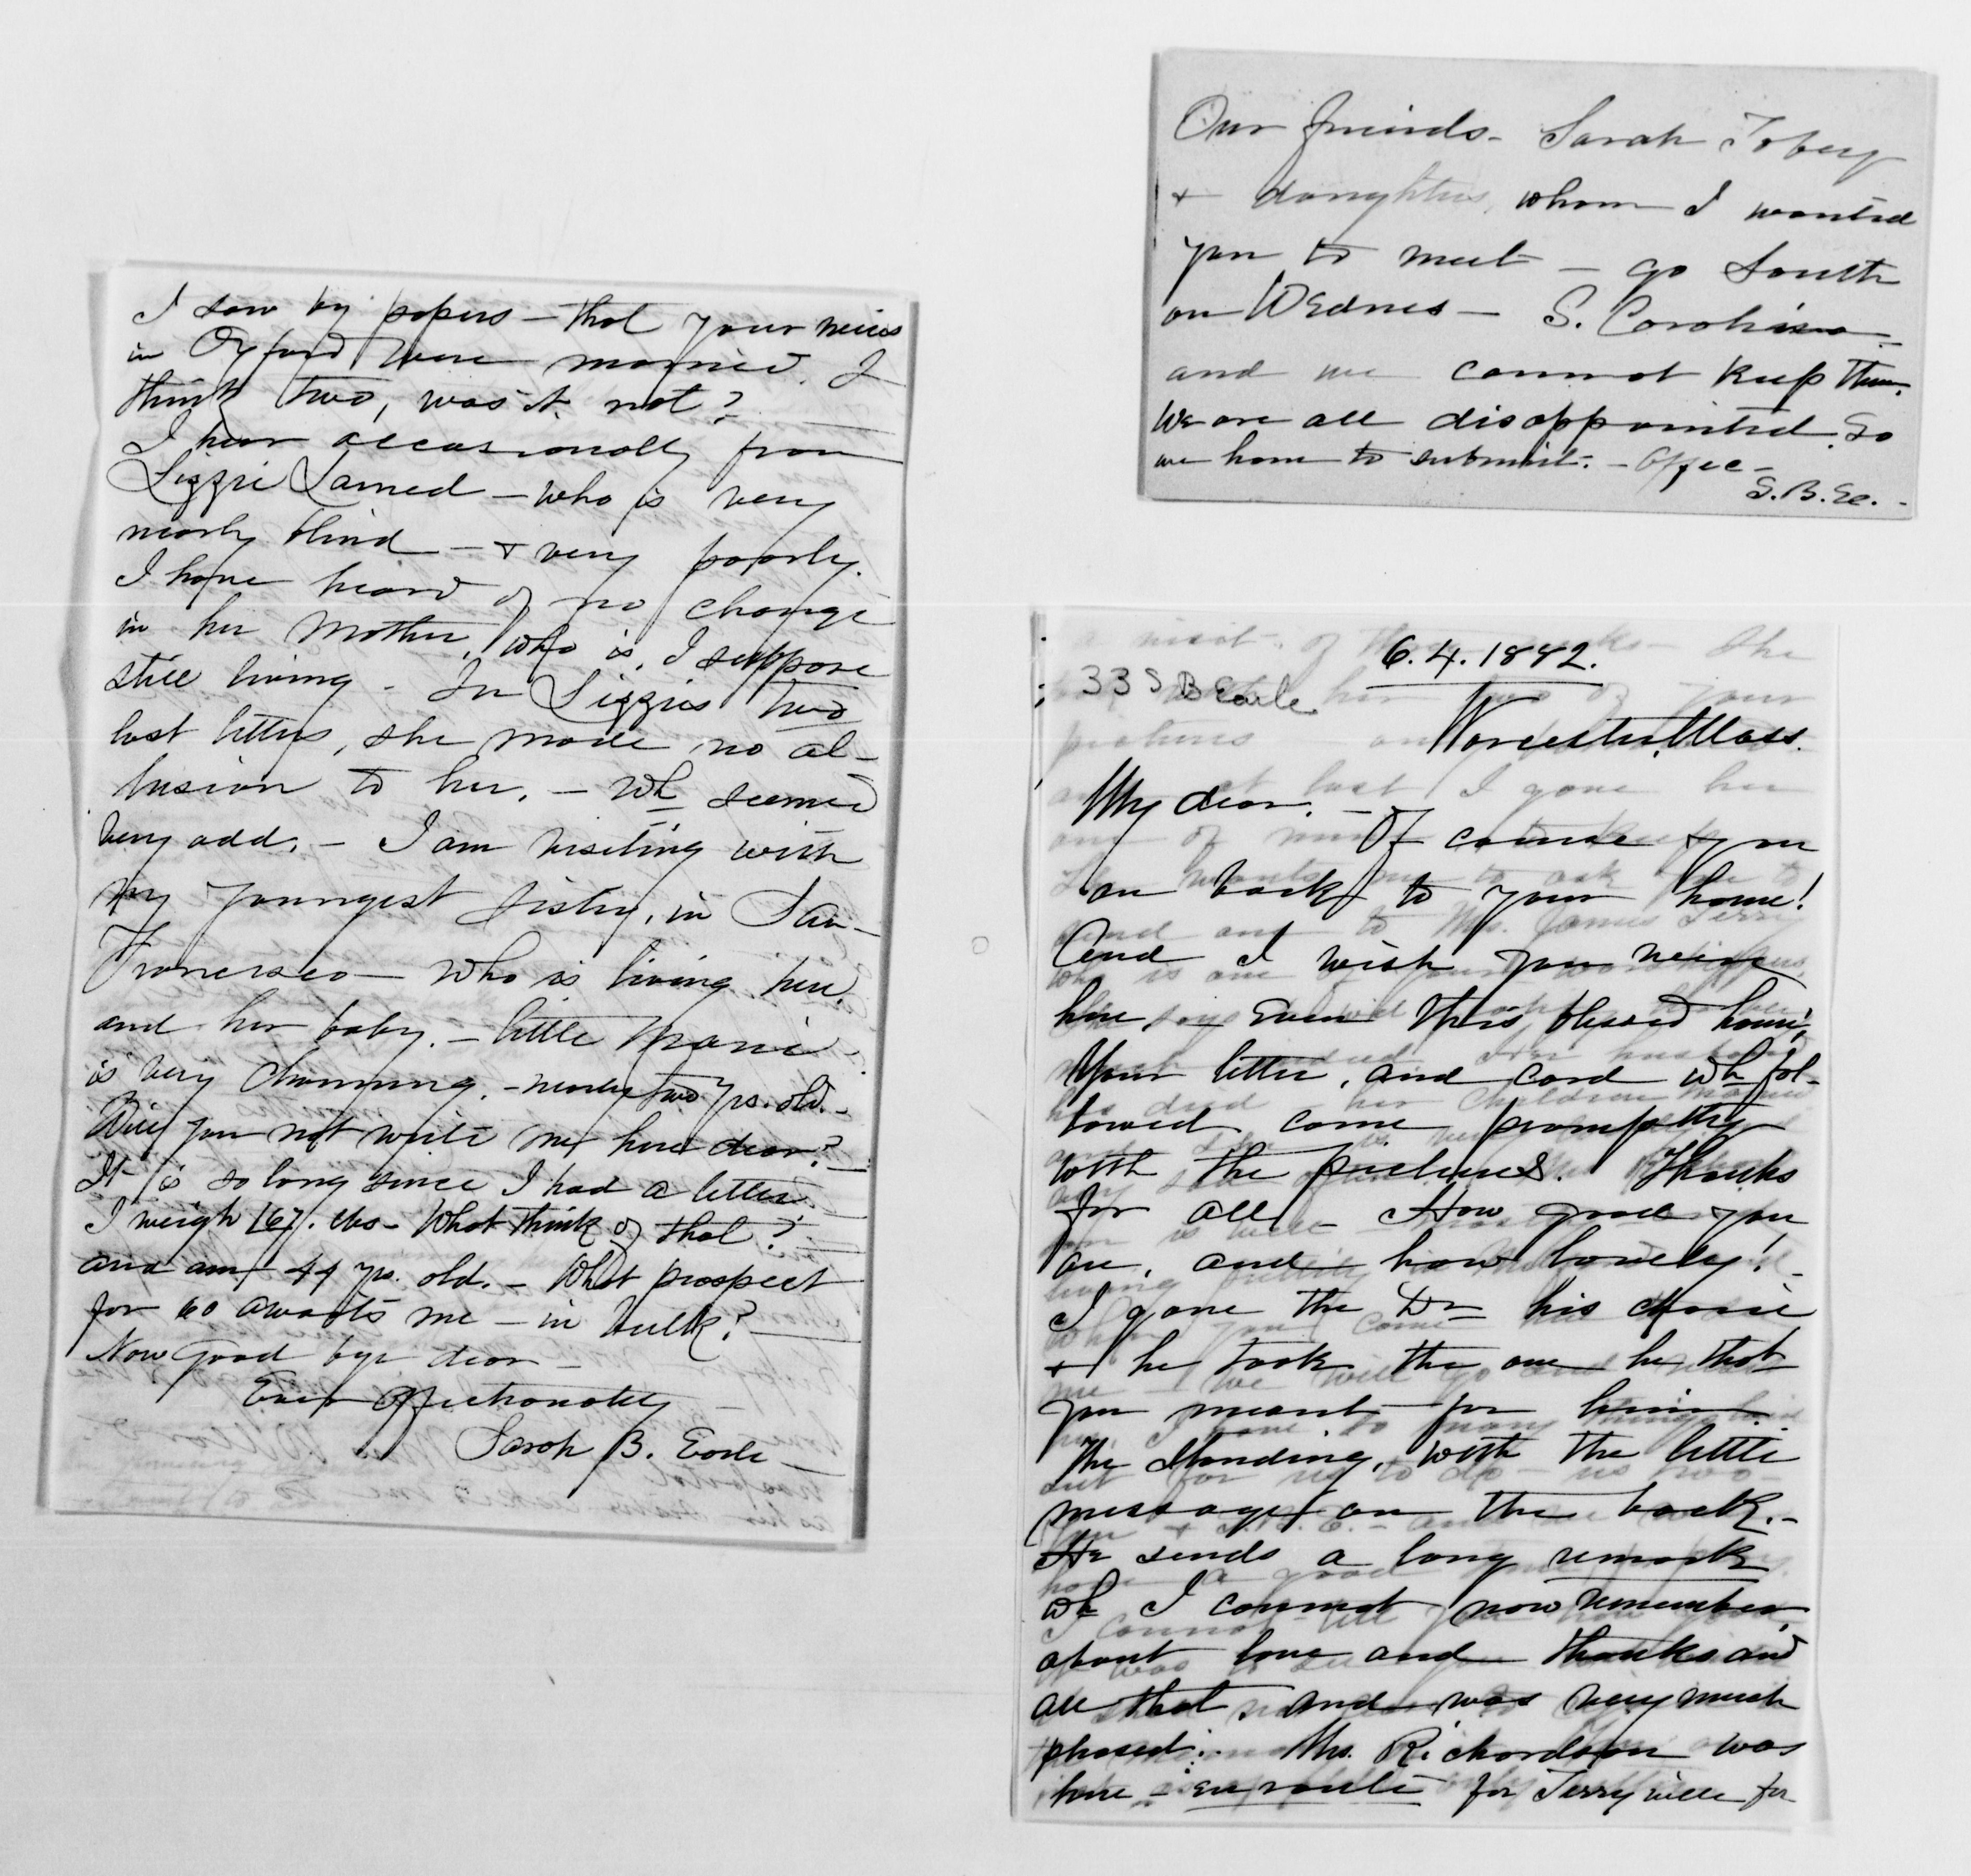 I saw by papers - that your nieces
in Oxford were married. I
think two, was it not?
I hear occasionally from
Lizzie Larned - who is very
nearly blind - & very poorly.
I have heard of no change
in her mother, who is, I suppose
still living - In Lizzies two
last letters, she made no al-
lusion to her. - Wh seemed
very odd. - I am visiting with
my youngest sister, in San-
Francisco - who is living here,
and her baby. - little Marie
is very charming. - nearly two yrs. old. -
Will you not write me here dear? -
It is so long since I had a letter.
I weigh 167. lbs - What think of that?
and am 44 yrs. old. - What prospect
for 60 awaits me - in bulk?
Now good bye dear -
Ever affectionately
Sarah B. Earle -
Our friends - Sarah Tobey
& daughters, whom I wanted
you to meet - go South
on Wednes - S. Carolina -
and we cannot keep them.
We are all disappointed. So
we have to submit. - Affec -
S. B. E. -
6. 4. 1882.
33 S B Earle
Worcester, Mass.
My dear. - Of course you
are back to your home!
And I wish you were
here, even this blessed hour,
Your letter, and card wh fol-
lowed came promptly
with the pictures. Thanks
for all - How good you
are, and how lovely! -
I gave the Dr his choice
& he took the one he that
you meant for him
The standing, with the little
message on the back. -
He sends a long remark
wh I cannot now remember,
about love and thanks and
all that and was very much
pleased. Mrs. Richardson was
here - en route for Terryville for